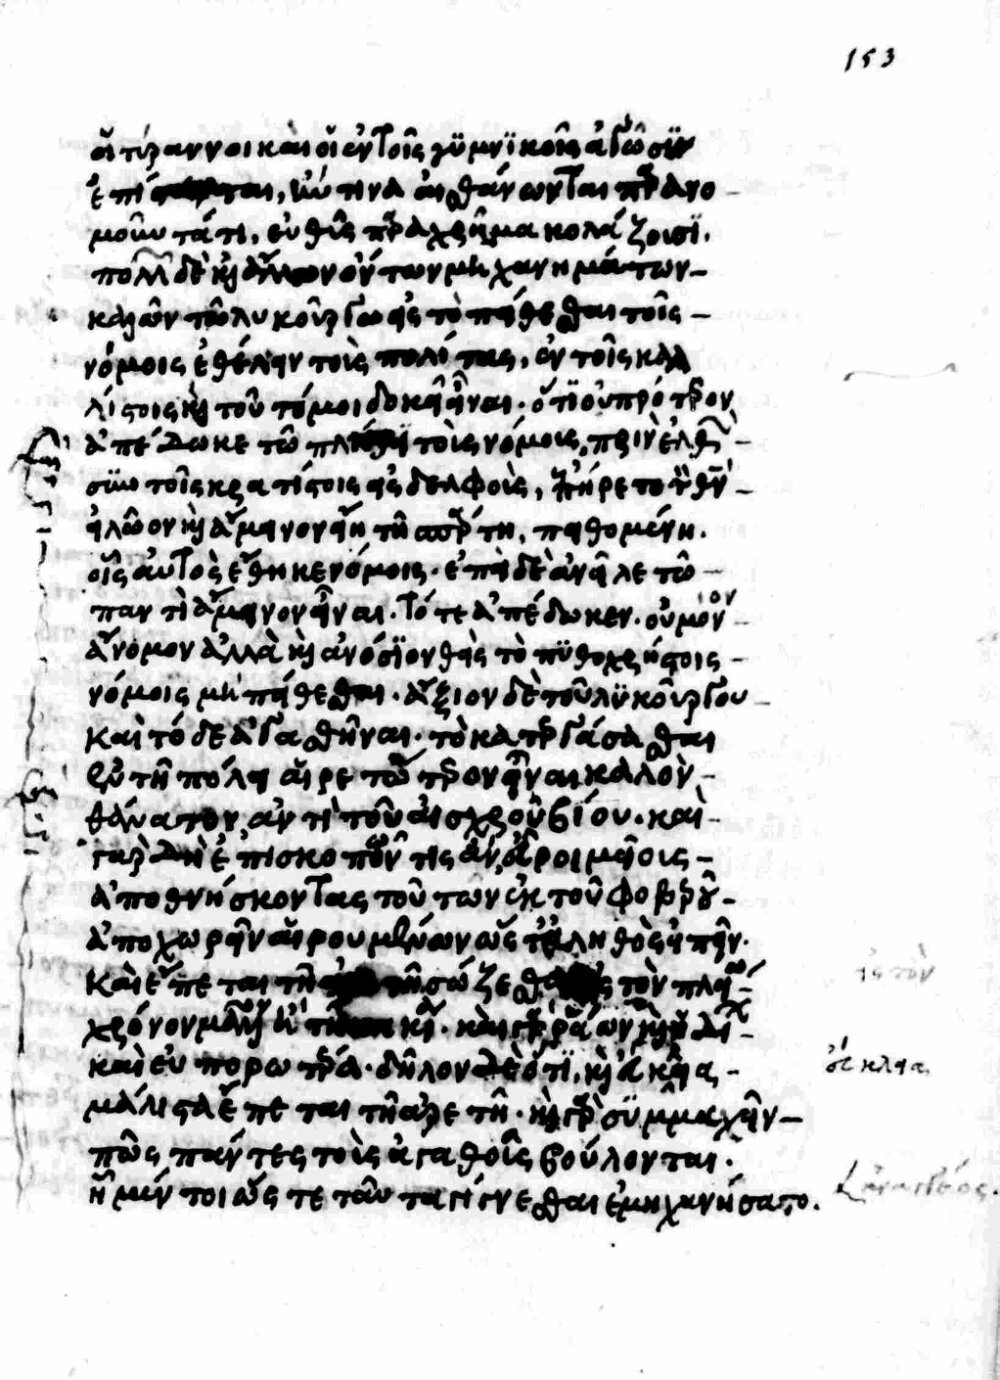 153
οἱ τύραννοι καὶ οἱ ἐν τοῖς γυμνικοῖς ἀγῶσιν
ἐπιστάται, ἤν τινα αἰσθάνωνται παρανο
μοῦντά τι, εὐθὺς παραχρῆμα κολάζουσι.
πολλῶν δὲ καὶ ἄλλων ὄντων μηχανημάτων
καλῶν τῷ Λυκούργῳ εἰς τὸ πείθεσθαι τοῖς
νόμοις ἐθέλειν τοὺς πολίτας, ἐν τοῖς καλ
λίστοις καὶ τοῦτό μοι δοκεῖ εἶναι. ὅτι οὐ πρότερον
ἀπέδωκε τῷ πλήθει τοὺς νόμους, πρὶν ἐλθὼν
σὺν τοῖς κρατίστοις εἰς δελφοὺς, ἐπήρετο τὸν θεὸν
εἰ λῷον καὶ ἄμεινον εἴη τῇ σπάρτῃ, πειθομένῃ
οἷς αὐτὸς ἔθηκε νόμοις. ἐπεὶ δὲ ἀνεῖλε τῷ
παντὶ ἄμεινον εἶναι. τότε ἀπέδωκεν. οὐ μόνον
ἄνομον ἀλλὰ καὶ ἀνόσιον θεὶς τὸ πυθοχρήστοις
νόμοις μὴ πείθεσθαι. ἄξιον δὲ τοῦ λυκούργου
καὶ τόδε ἀγασθῆναι. τὸ κατεργάσασθαι
ἐν τῇ πόλει αἱρετώτερον εἶναι καλὸν
θάνατον ἀντὶ τοῦ αἰσχροῦ βίου. καὶ
γὰρ δὴ ἐπισκοπῶν τις ἂν εὕροι μείους
ἀποθνήσκοντας τούτων ἐκ τοῦ φοβεροῦ
ἀποχωρεῖν αἱρουμένων ὡς τἀληθὲς εἰπεῖν.
καὶ ἕπεται τῇ ἀρετῇ σώζεσθαι εἰς τὸν πλείω
χρόνον μᾶλλον ἢ τῇ κακίᾳ. καὶ γὰρ ῥᾴων καὶ ἡδίων
καὶ εὐπορωτέρα. δῆλον δὲ ὅτι καὶ εὔκλεια
μάλιστα ἕπεται τῇ ἀρετῇ. καὶ γὰρ συμμαχεῖν
πῶς πάντες τοῖς ἀγαθοῖς βούλονται.
ᾗ μέντοι ὥστε ταῦτα γίγνεσθαι ἐμηχανήσατο.
εἰς τὸν